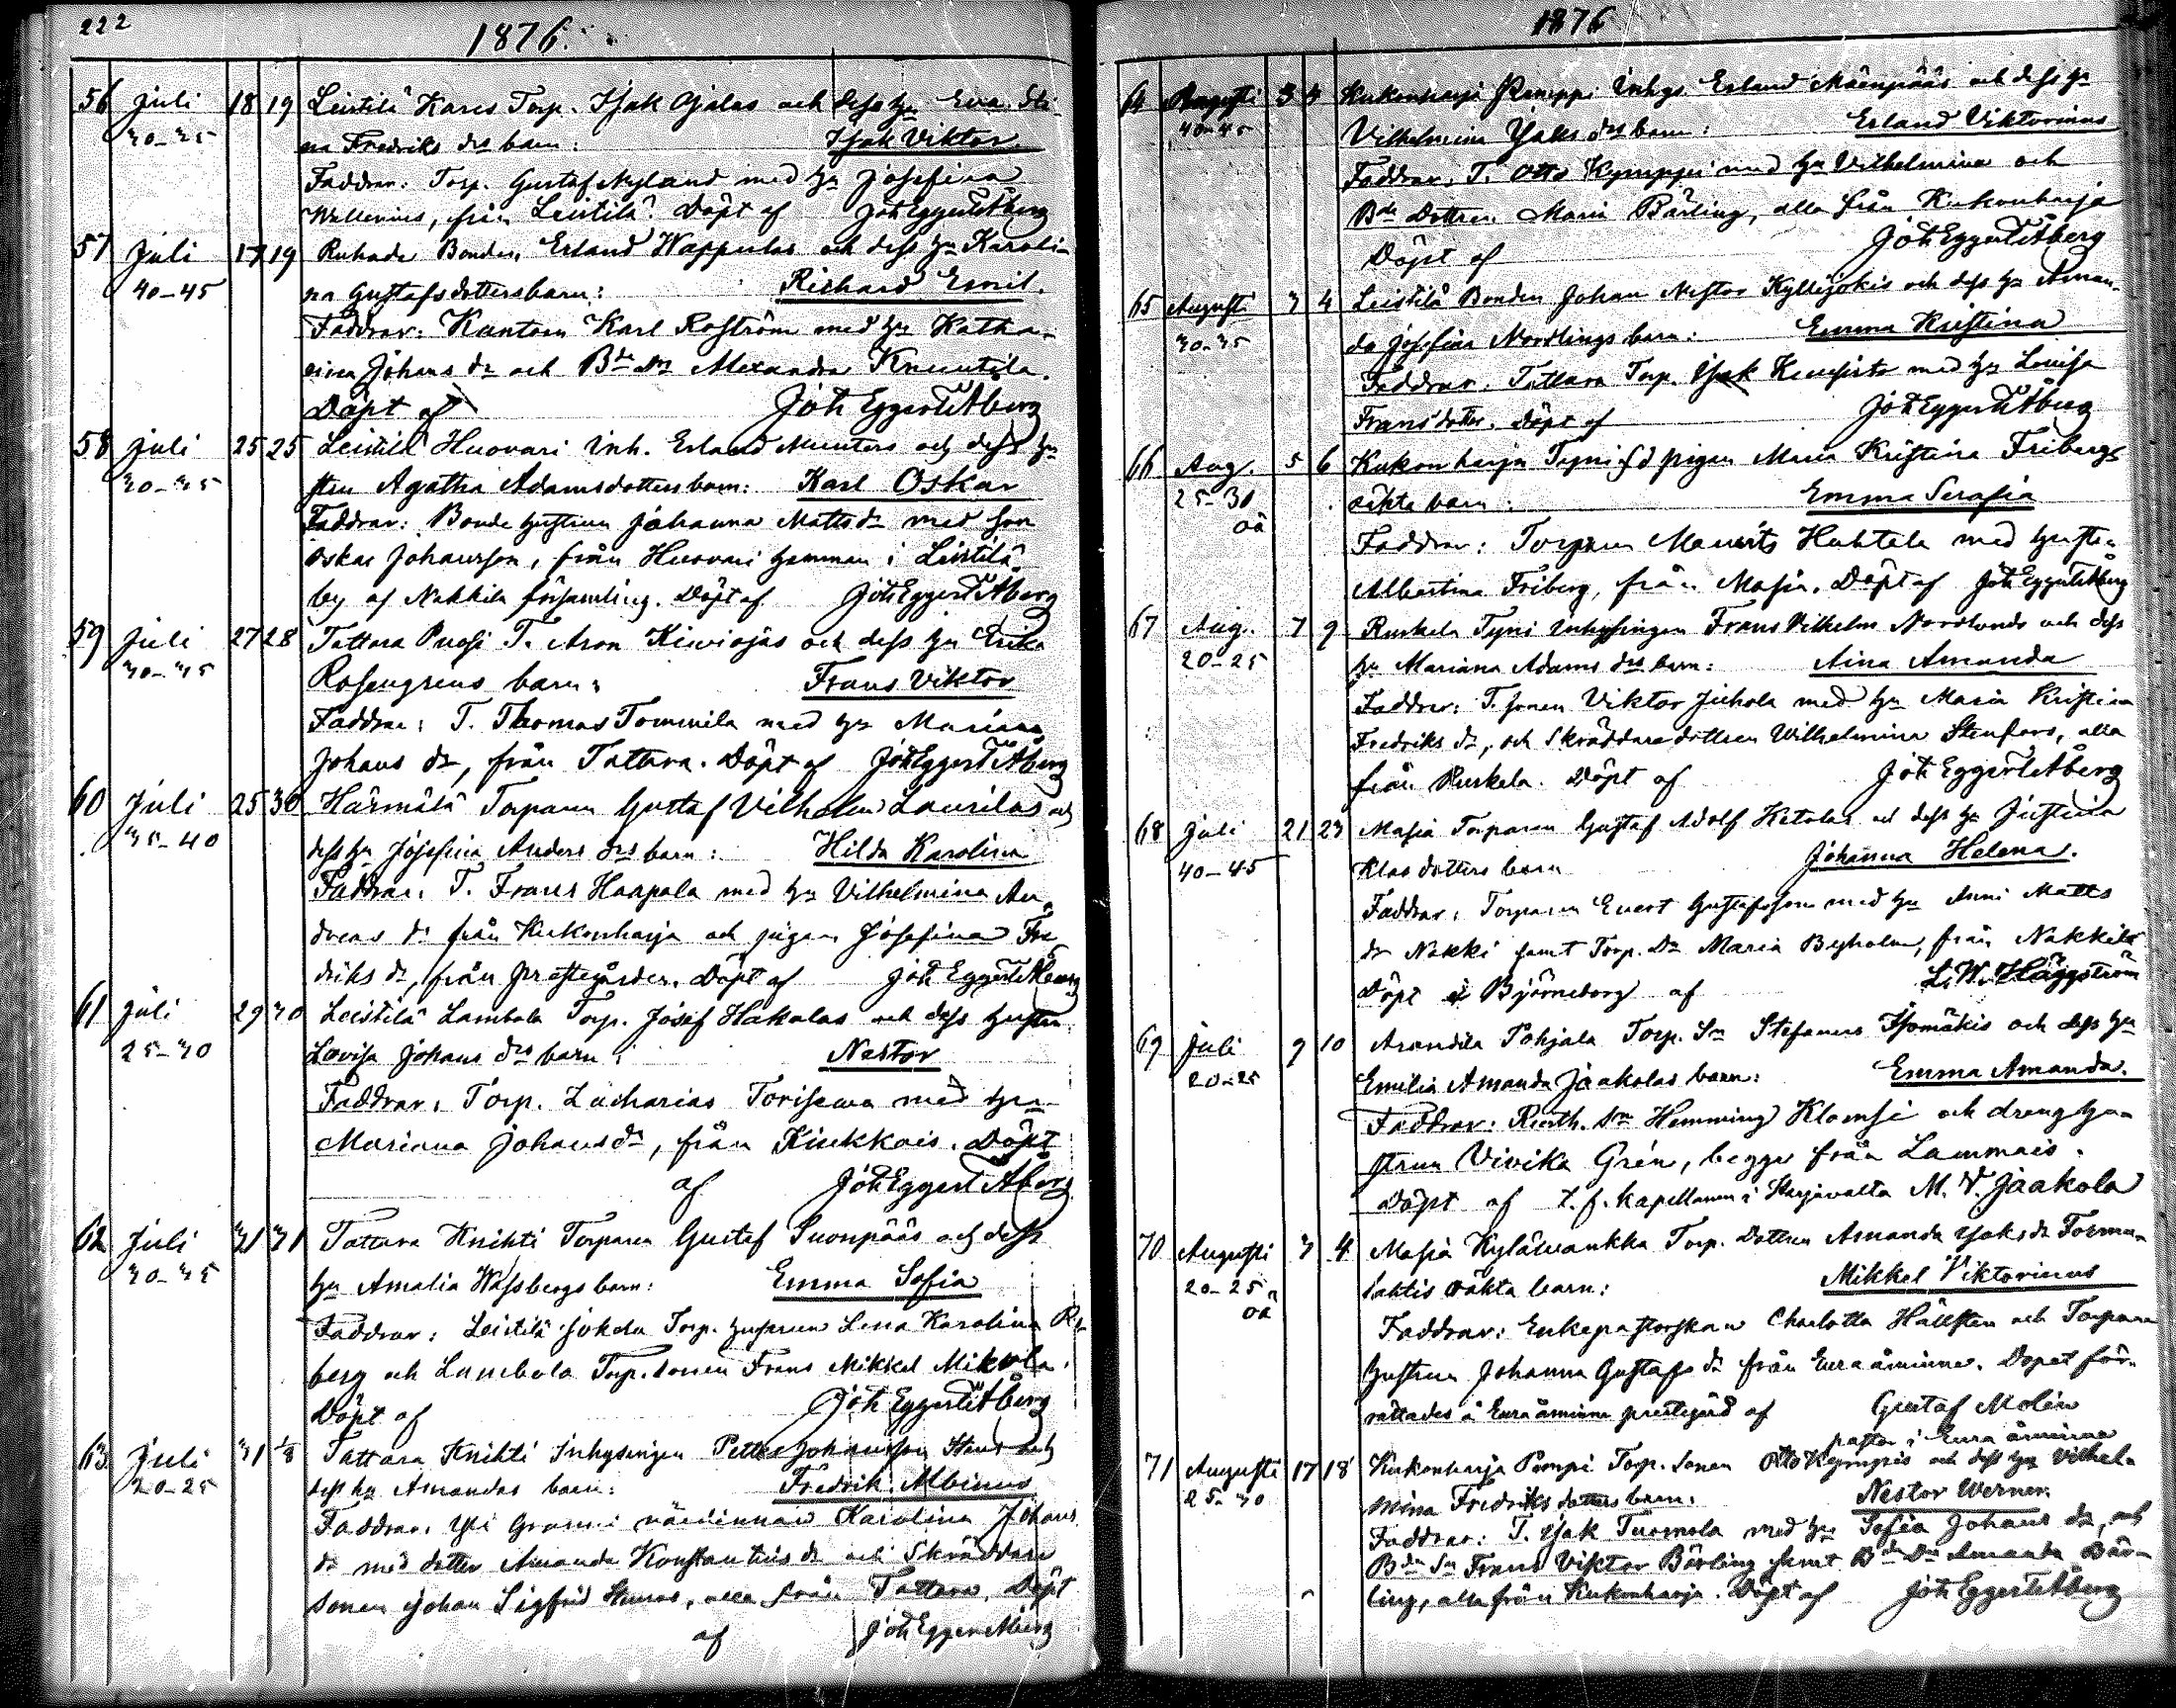 222
1876.
56 Juli 18 19 Leistilä Kares Torp. Isak Ojalas och dess hu Eva Sti-
30-35 na Fredriks drs barn: Isak Viktor.
Faddrar: Torp. Gustaf Nyland med hu Josefina
Wallenius, från Leistilä. Döpt af Joh Eggert Åberg
57 Juli 17 19 Ruhade Bonden Erland Wappulas och dess hu Karoli-
40-45 na Gustafsdotters barn: Richard Emil.
Faddrar: Kantorn Karl Roström med hu Katha-
rina Johans dr och Bde dr Alexandra Knuutila.
Döpt af Joh Eggert Åberg
58 Juli 25 25 Leistilä Huovari Inh. Erland Munters och dess hu
30-35 stru Agatha Adamsdotters barn: Karl Oskar
Faddrar: Bonde hustrun Johanna Matts dr med son
Oskar Johansson, från Huovari hemman i Leistilä
by af Nakkila församling. Döpt af Joh Eggert Åberg
59 Juli 27 28 Tattara Puosi T. Aron Kiviojas och dess hu Erika
30-35 Rosengrens barn: Frans Viktor
Faddrar: T. Thomas Tommila med hu Mariana
Johans dr, från Tattara. Döpt af Joh Eggert Åberg
60 Juli 25 30 Härmälä Torparen Gustaf Vilhelm Laurilas och
35-40 dess hu Josefina Anders drs barn: Hilda Karolina
Faddrar: T. Frans Haapala med hu Vilhelmina An-
dreas dr från Kukonharja och pigan Josefina Fre
driks dr, från prestegården. Döpt af Joh Eggert Åberg
61 Juli 29 30 Leistilä Lambola Torp. Josef Hakalas och dess hustru
25-30 Lovisa Johans drs barn: Nestor
Faddrar: Torp. Zacharias Torissewa med hu
Mariana Johans dr, från Kiukkais. Döpt
af Joh Eggert Åberg
62 Juli 31 31 Tattara Knihti Torparen Gustaf Suonpääs och dess
30-35 hu Amalia Wassbergs barn: Emma Sofia
Faddrar: Leistilä Jokela Torp. hustrun Lena Karolina
berg och Lambola Torp. sonen Frans Mikkel Mikola.
Döpt af Joh Eggert Åberg
63 Juli 31 1/8 Tattara Knihti Inhysingen Petter Johansson Stenros och
20-25 dess hu Amandas barn: Fredrik Albinus
Faddrar: Yli värdinnan Karolina Johans
dr med dotter Amanda Konstantins dr och Skräddare
sonen Johan Sigfrid, alla från Tattara. Döpt
af Joh Eggert Åberg
1876
64 Augusti 3 4 Kukonharja Pomppi Inhys. Erland Mäenpääs och dess hu
40-45 Vilhelmina Isaks drs barn: Erland Viktorinus
Faddrar: T. Otto Kymppi med hu Vilhelmina och
Bde Dottren Maria Bärling, alla från Kukonharja
Döpt af Joh Eggert Åberg
65 Augusti 3 4 Leistilä Bonden Johan Nestor Kyllijokis och dess hu Aman-
30-35 da Josefina Nordlings barn: Emma Kristina
Faddrar: Tattara Torp. Isak med hu Lovisa
Fransdotter. Döpt af Joh Eggert Åberg
66 Aug. 5 6 Kukonharja Tyni fd pigan Maria Kristina Fribergs
25-30 oäkta barn: Emma Serafia
oä
Faddrar: Torparen Maurits Huhtala med hustru
Albertina Friberg, från Masia. Döpt af Joh Eggert Åberg
67 Aug. 7 9 Ruskela Tyni Inhysingen Frans Vilhelm Nordlunds och dess
20-25 hu Mariana Adams drs barn: Aina Amanda
Faddrar: T. sonen Viktor Juhola med hu Maria Kristina
Fredriks dr, och Skräddare dottren Wilhelmina Stenfors, alla
från Ruskela. Döpt af Joh Eggert Åberg
68 Juli 21 23 Masia Torparen Gustaf Adolf Ketolas och dess hu Justina
40-45 Klas dotters barn Johanna Helena.
Faddrar: Torparen Evert Gustafsson med hu Anni Matts
dr Nakki samt Torp. Dr Maria Byholm, från Nakkila
Döpt i Björneborg af L. W. Häggström
69 Juli 9 10 Arandila Pohjala Torp. Sn Stefanus Isomäkis och dess hu
20-25 Emilia Amanda Jaakolas barn: Emma Amanda.
Faddrar: Rusth. Sn Hemming Klomsi och dreng hu-
strun Vivika Grén, begge från Lammais.
Döpt af t.f. kapellanen i Harjavalta M. V. Jaakola
70 Augusti 3 4 Masia Kylävankka Torp. Dottren Amanda Isaks dr Torma-
20-25 lahtis oäkta barn: Mikkel Viktorinus
oä
Faddrar: Enkepastorskan Charlotta Hällsten och Torpare
hustrun Johanna Gustafs dr från Euraåminne. Dopet för-
rättades i Euraåminne prestegård af Gustaf Molin
pastor i Euraåminne
71 Augusti 17 18 Kukonharja Pomppi Torp. sonen Otto Kymppis och dess hu Vilhel-
25-30 mina Fredriks dotters barn: Nestor Werner
Faddrar: T. Isak Tuomola med hu Sofia Johans dr, och
Bde Sn Frans Viktor Bärling samt Bde Dr Amanda Bär-
ling, alla från Kukonharja. Döpt af Joh Eggert Åberg